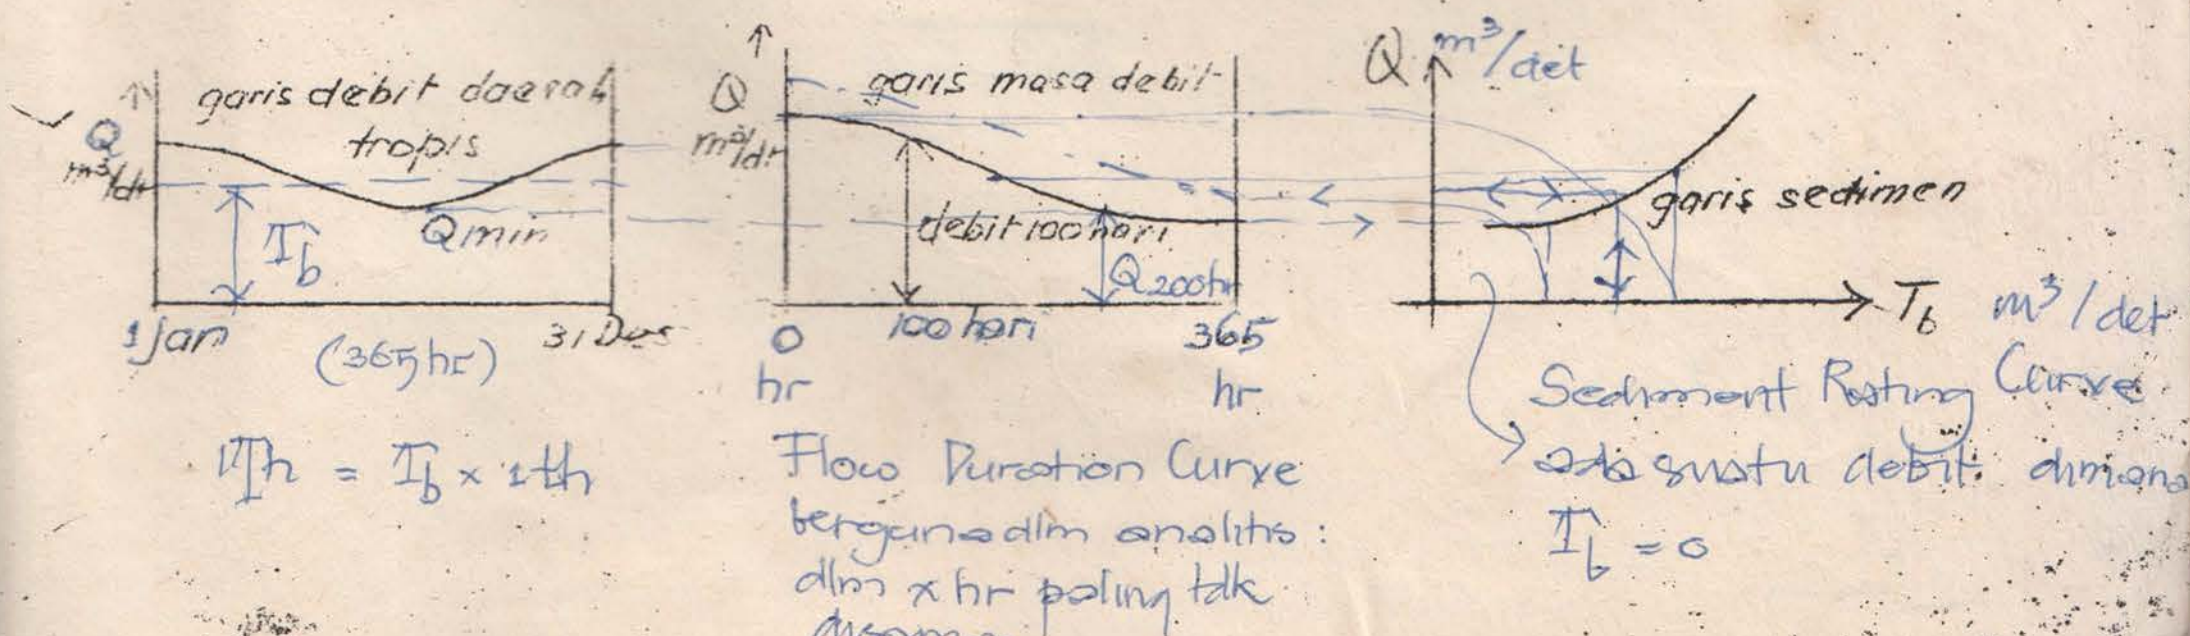 garis debit daerah
tropis
Q
m³/dt
T_b
Qmin
1 Jan
(365 hr)
31 Des
𝑇h = T_b × 1th
Q
m³/dt
garis masa debit
debit 100 hari
Q200hr
0
hr
100 hari
365
hr
Flow Duration Curve
berguna dlm analitis :
dlm x hr paling tdk
Q m³/det
garis sedimen
T_b m³/det
Sediment Rating Curve
ada suatu debit dimana
T_b = 0